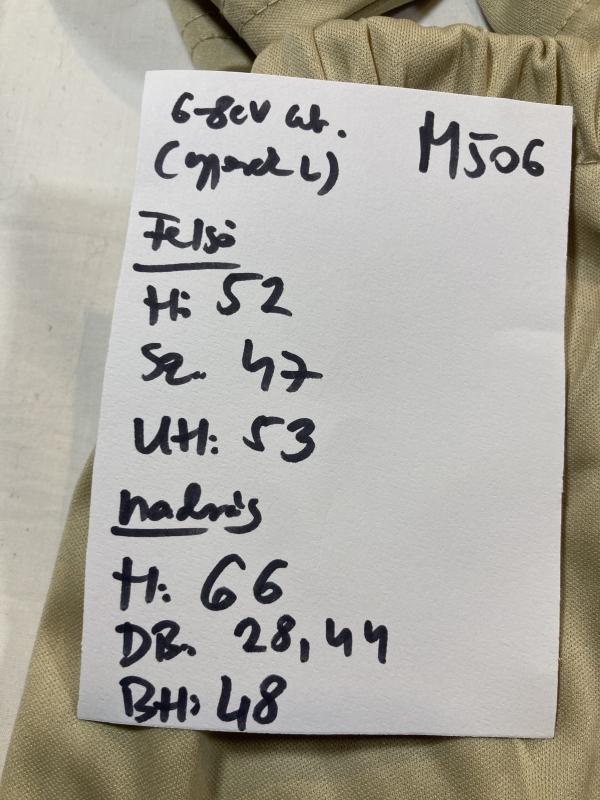 6-8év kb.
(gyerek L)
M506
Felső
H: 52
Sz. 47
UH: 53
Nadrág
H: 66
DB. 28,44
BH: 48